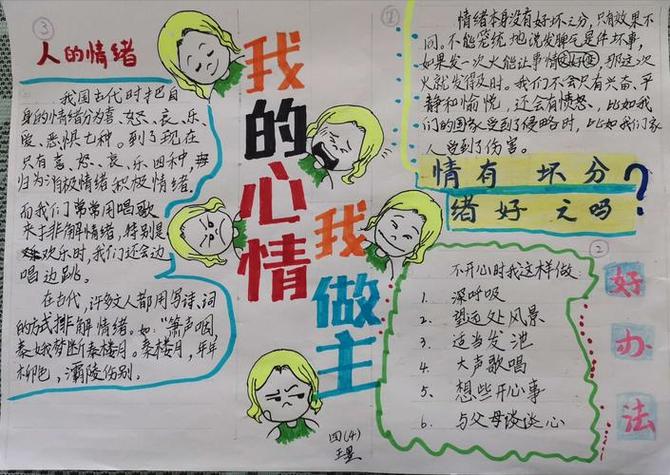 ③
人的情绪
我国古代时把自
身的情绪分为喜、怒、哀、乐、
爱、恶惧七种。到了现在
只有喜、怒、哀、乐四种,并
归为消极情绪积极情绪.
而我们常常用唱歌
来排解情绪,特别是
欢乐时,我们还会边
唱边跳。
在古代,许多文人都用写诗、词
的方式排解情绪。如:“箫声咽,
秦娥梦断秦楼月。秦楼月,年年
柳色,灞陵伤别。
我的心情
我做主
四(4)
①
情绪本身没有好坏之分,只有效果不
同。不能笼统地说发脾气是件坏事,
如果发一次火能让事情变好,那这次
火就发得及时。我们不会只有兴奋、平
静和愉悦,还会有愤怒、比如我
们的国家受到了侵略时,比如我们家
人受到了伤害。
情有 坏分
绪好 之吗?
②
好办法
不开心时我这样做
1. 深呼吸
2. 望远处风景
3. 适当发池
4. 大声歌唱
5. 想些开心事
6. 与父母谈谈心